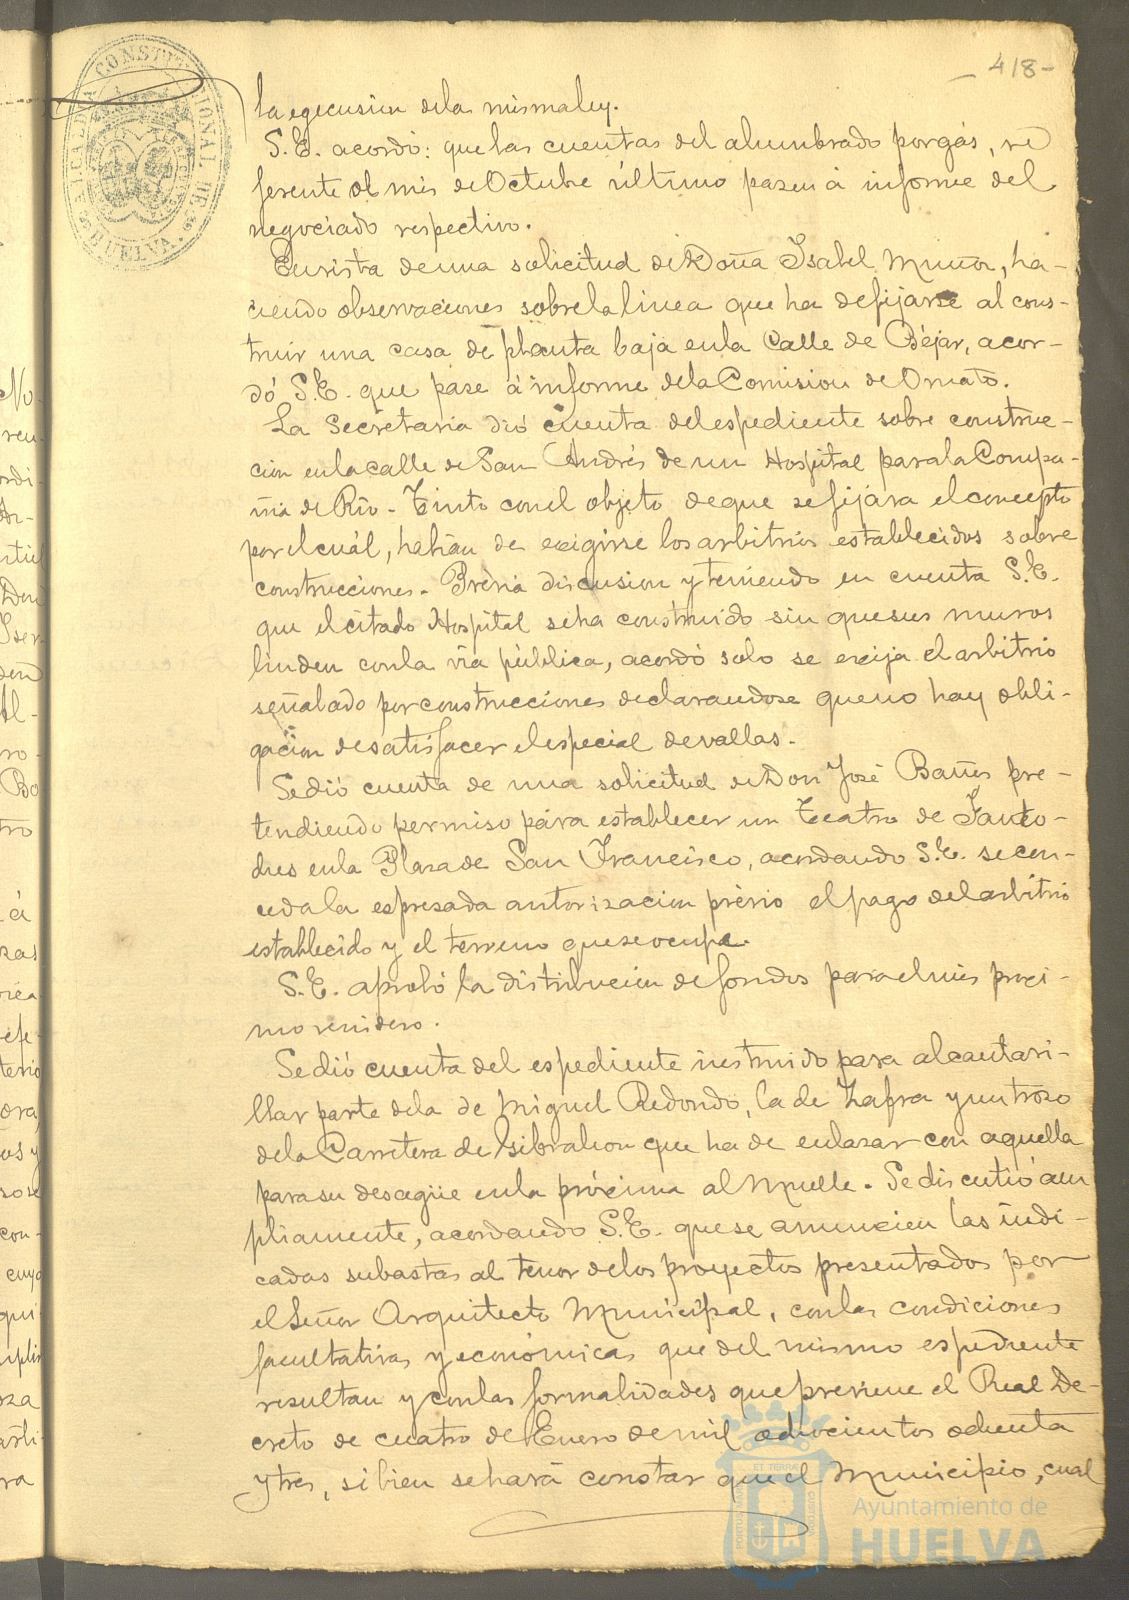 -418-
ALCALDIA CONSTITUCIONAL DE HUELVA.
la egecusion dela mismaley.
S.E. acordó: que las cuentas del alumbrado porgás, re
ferente al mes de Octubre último pasen á informe del
negociado respectivo.
Envista de una solicitud de Doña Isabel Muñoz, ha-
ciendo observaciones sobre la linea que ha defijarse al cons-
truir una casa de planta baja enla Calle de Béjar, acor-
dó S.E. que pase á informe dela Comision de Ornato.
La Secretaria dió cuenta del espediente sobre construc-
cion enlacalle de San Andrés de un Hospital parala Compa-
ñia de Rio-Tinto conel objeto deque sefijara el concepto
por el cuál, habian de exigirse los arbitrios establecidos sobre
construcciones. Prévia discusion y teniendo en cuenta S.E.
que el citado Hospital seha construido sin quesus muros
linden conla via pública, acordó solo se exija el arbitrio
señalado por construcciones declarandose queno hay obli-
gacion desatisfacer el especial devallas.
Sedió cuenta de una solicitud de Don José Bañes pre-
tendiendo permiso para establecer un Teatro de Fanto-
ches enla Plaza de San Francisco, acordando S.E. secon-
ceda la espresada autorizacion prévio el pago del arbitrio
establecido y el terreno queseocupe.
S.E. aprobó la distribucion defondos parael mes proxi-
mo venidero.
Sedió cuenta del espediente instruido para alcantari-
llar parte dela de Miguel Redondo, la de Zafra y untrozo
dela Carretera de Gibraleon que ha de enlazar con aquella
parasu desagüe enla próxima al Muelle. Sediscutió am
pliamente, acordando S.E. quese anuncien las indi-
cadas subastas al tenor delos proyectos presentados por
el Señor Arquitecto Municipal, conlas condiciones
facultativas y económicas que del mismo espediente
resultan y conlas formalidades que previene el Real De-
creto de cuatro de Enero de mil ochocientos ochenta
y tres, sibien sehará constar que el Municipio, cual
Ayuntamiento de
HUELVA